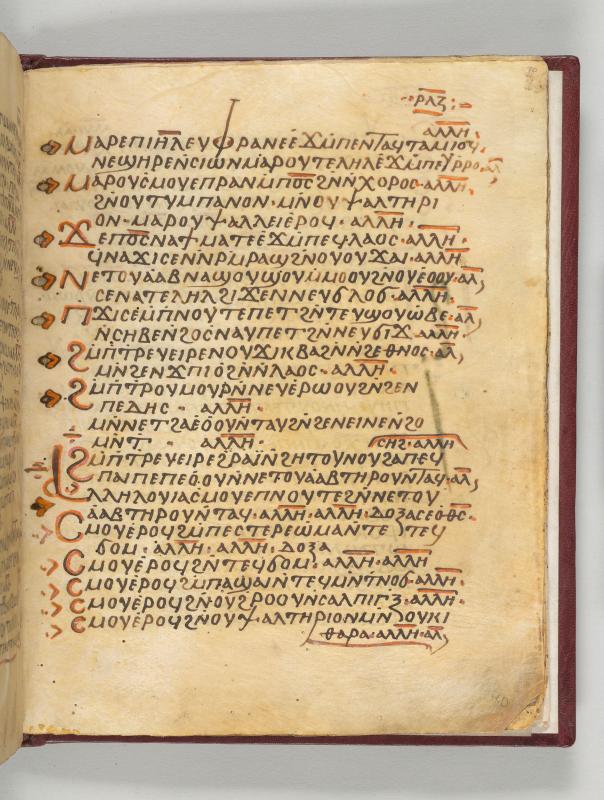 ⲣⲗⲍ
ⲁⲗⲗⲏ
ⲙⲁⲣⲉⲡⲓⲏⲗⲉⲩⲫⲣⲁⲛⲉⲉϫⲙⲡⲉⲛⲧⲁϥⲧⲁⲙⲓⲟϥ·
ⲛⲉϣⲏⲣⲉⲛⲥⲓⲱⲛⲙⲁⲣⲟⲩⲧⲉⲗⲏⲗⲉϫⲙⲡⲉⲩⲣⲣⲟ·ⲁⲗ
ⲙⲁⲣⲟⲩⲥⲙⲟⲩⲉⲡⲣⲁⲛⲙⲡⲟⲥϩⲛⲛⲭⲟⲣⲟⲥ·ⲁⲗⲗⲏ
ϩⲛⲟⲩⲧⲩⲙⲡⲁⲛⲟⲛ·ⲙⲛⲟⲩⲯⲁⲗⲧⲏⲣⲓ
ⲟⲛ·ⲙⲁⲣⲟⲩⲯⲁⲗⲗⲉⲓⲉⲣⲟϥ·ⲁⲗⲗⲏ·
ϫⲉⲡⲟⲥⲛⲁϯⲙⲁⲧⲉⲉϫⲙⲡⲉϥⲗⲁⲟⲥ·ⲁⲗⲗⲏ·
ϥⲛⲁϫⲓⲥⲉⲛⲛⲣⲙⲣⲁϣϩⲛⲟⲩⲟⲩϫⲁⲓ·ⲁⲗⲗⲏ·
ⲛⲉⲧⲟⲩⲁⲁⲃⲛⲁϣⲟⲩϣⲟⲩⲙⲙⲟⲟⲩϩⲛⲟⲩⲉⲟⲟⲩ·ⲁⲗ
ⲥⲉⲛⲁⲧⲉⲗⲏⲗϩⲓϫⲉⲛⲛⲉⲩϭⲗⲟϭ·ⲁⲗⲗⲏ·
ⲡϫⲓⲥⲉⲙⲡⲛⲟⲩⲧⲉⲡⲉⲧϩⲛⲧⲉⲩϣⲟⲩⲱⲃⲉ·ⲁⲗ
ⲛⲥⲏⲃⲉⲛϩⲟⲥⲛⲁⲩⲡⲉⲧϩⲛⲛⲉⲩϭⲓϫ·ⲁⲗⲗⲏ·
ϩⲙⲡⲧⲣⲉⲩⲉⲓⲣⲉⲛⲟⲩϫⲓⲕⲃⲁϩⲛⲛϩⲉⲑⲛⲟⲥ·ⲁⲗ
ⲙⲛϩⲉⲛϫⲡⲓⲟϩⲛⲛⲗⲁⲟⲥ·ⲁⲗⲗⲏ·
ϩⲙⲡⲧⲣⲟⲩⲙⲟⲩⲣⲛⲛⲉⲩⲉⲣⲱⲟⲩϩⲛϩⲉⲛ
ⲡⲉⲇⲏⲥ· ⲁⲗⲗⲏ·
ⲙⲛⲛⲉⲧϩⲁⲉⲟⲟⲩⲛⲧⲁⲩϩⲛϩⲉⲛⲉⲓⲛⲉⲛϩⲟ
ⲙⲛⲧ· ⲁⲗⲗⲏ· ⲥⲏϩ·ⲁⲗⲗⲏ
ϩⲙⲡⲧⲣⲉⲩⲉⲓⲣⲉϩⲣⲁⲓⲛϩⲏⲧⲟⲩⲛⲟⲩϩⲁⲡⲉϥ
ⲡⲁⲓⲡⲉⲡⲉⲟⲟⲩⲛⲛⲉⲧⲟⲩⲁⲁⲃⲧⲏⲣⲟⲩⲛⲧⲁϥ·ⲁⲗ
ⲁⲗⲗⲏⲗⲟⲩⲓⲁⲥⲙⲟⲩⲉⲡⲛⲟⲩⲧⲉϩⲛⲛⲉⲧⲟⲩ
ⲁⲁⲃⲧⲏⲣⲟⲩⲛⲧⲁϥ·ⲁⲗⲗⲏ·ⲁⲗⲗⲏ·ⲇⲟⲝⲁⲥⲉⲟⲑⲥ·
ⲥⲙⲟⲩⲉⲣⲟϥϩⲙⲡⲉⲥⲧⲉⲣⲉⲱⲙⲁⲛⲧⲉⲧⲉϥ
ϭⲟⲙ·ⲁⲗⲗⲏ·ⲁⲗⲗⲏ·ⲇⲟⲝⲁ
ⲥⲙⲟⲩⲉⲣⲟϥϩⲛⲧⲉϥϭⲟⲙ·ⲁⲗⲗⲏ·ⲁⲗⲗⲏ
ⲥⲙⲟⲩⲉⲣⲟϥϩⲙⲡⲁϣⲁⲓⲛⲧⲉϥⲙⲛⲧⲛⲟϭ·ⲁⲗⲗⲏ·
ⲥⲙⲟⲩⲉⲣⲟϥϩⲛⲟⲩϩⲣⲟⲟⲩⲛⲥⲁⲗⲡⲓⲅⲝ·ⲁⲗⲗⲏ·
ⲥⲙⲟⲩⲉⲣⲟϥϩⲛⲟⲩⲯⲁⲗⲧⲏⲣⲓⲟⲛⲙⲛⲟⲩⲕⲓ
ⲑⲁⲣⲁ·ⲁⲗⲗⲏ·ⲁⲗ